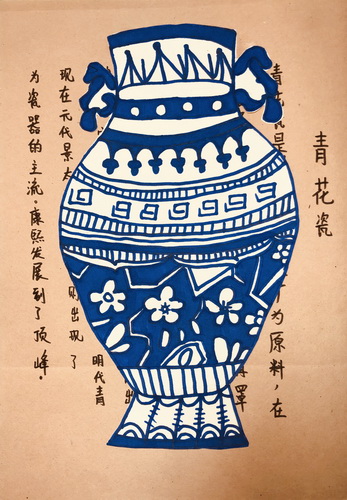 青花瓷
青花 是 为原料，在
罩
出
明代青
现在元代景 则出现了
为瓷器的主流。康熙发展到了顶峰。